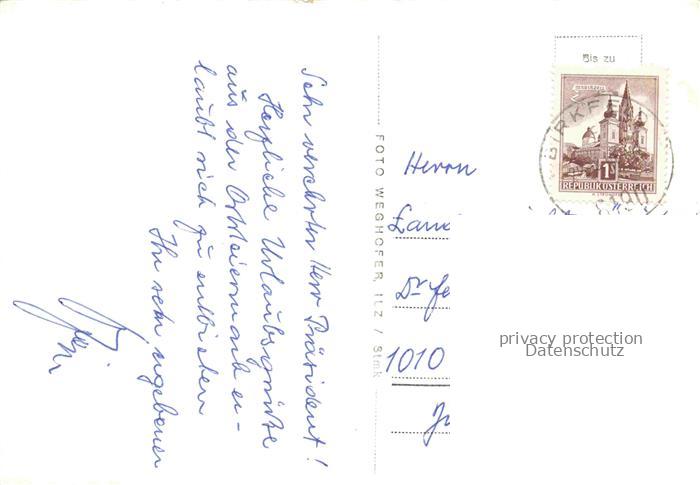 Sehr verehrter Herr Präsident!
Herzliche Urlaubsgrüße
aus der Oststeiermark er-
laubt sich zu entbieten
Ihr sehr ergebener
FOTO WEGHOFER, ILZ / Stmk
Bis zu
1 S
REPUBLIK ÖSTERREICH
BIRKFELD
8190
Herrn
Dr Fe
1010
privacy protection
Datenschutz